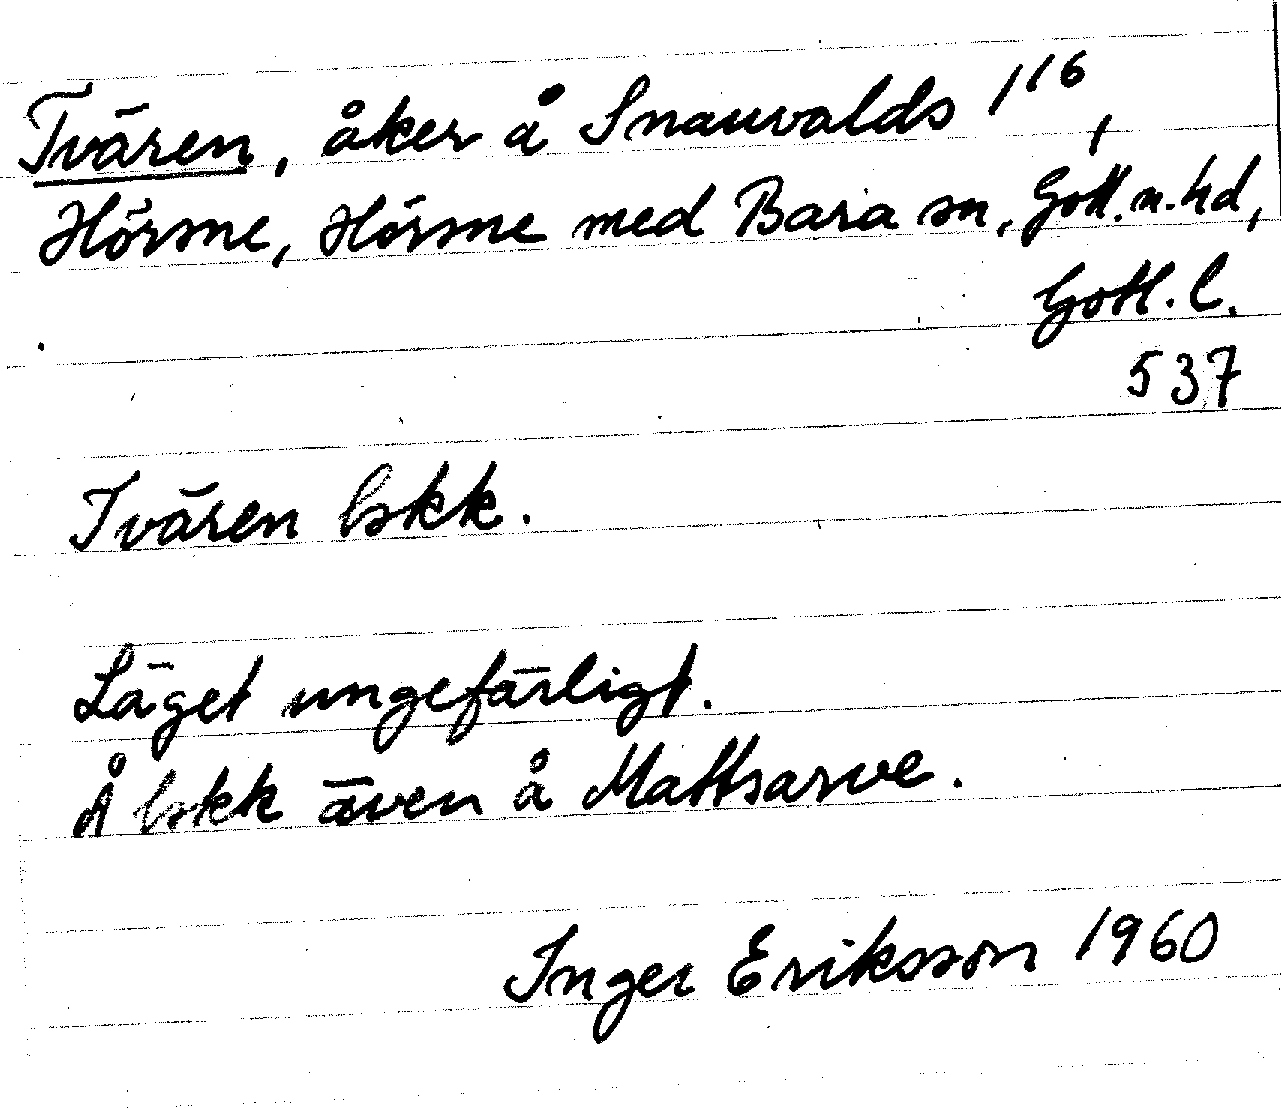 Tvären, åker å Snauvalds 1¹⁶,
Hörsne, Hörsne med Bara sn, Gotl. n. hd,
Gotl. l.
537
Tvären bskk.
Läget ungefärligt.
Å bskk även å Mattsarve.
Inger Eriksson 1960